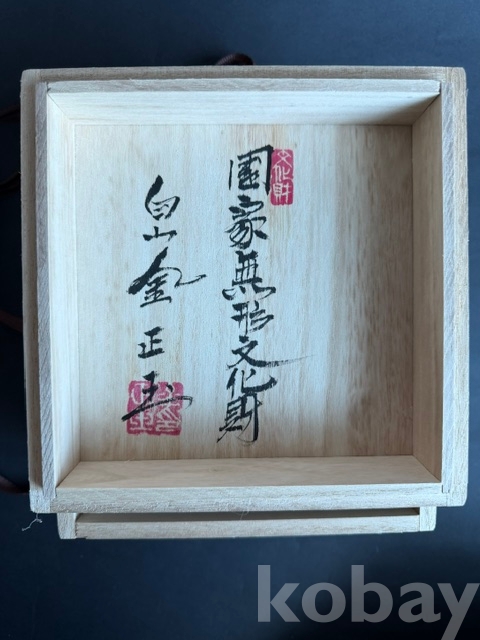 文化財
國家無形文化財
白山金正玉
kobay